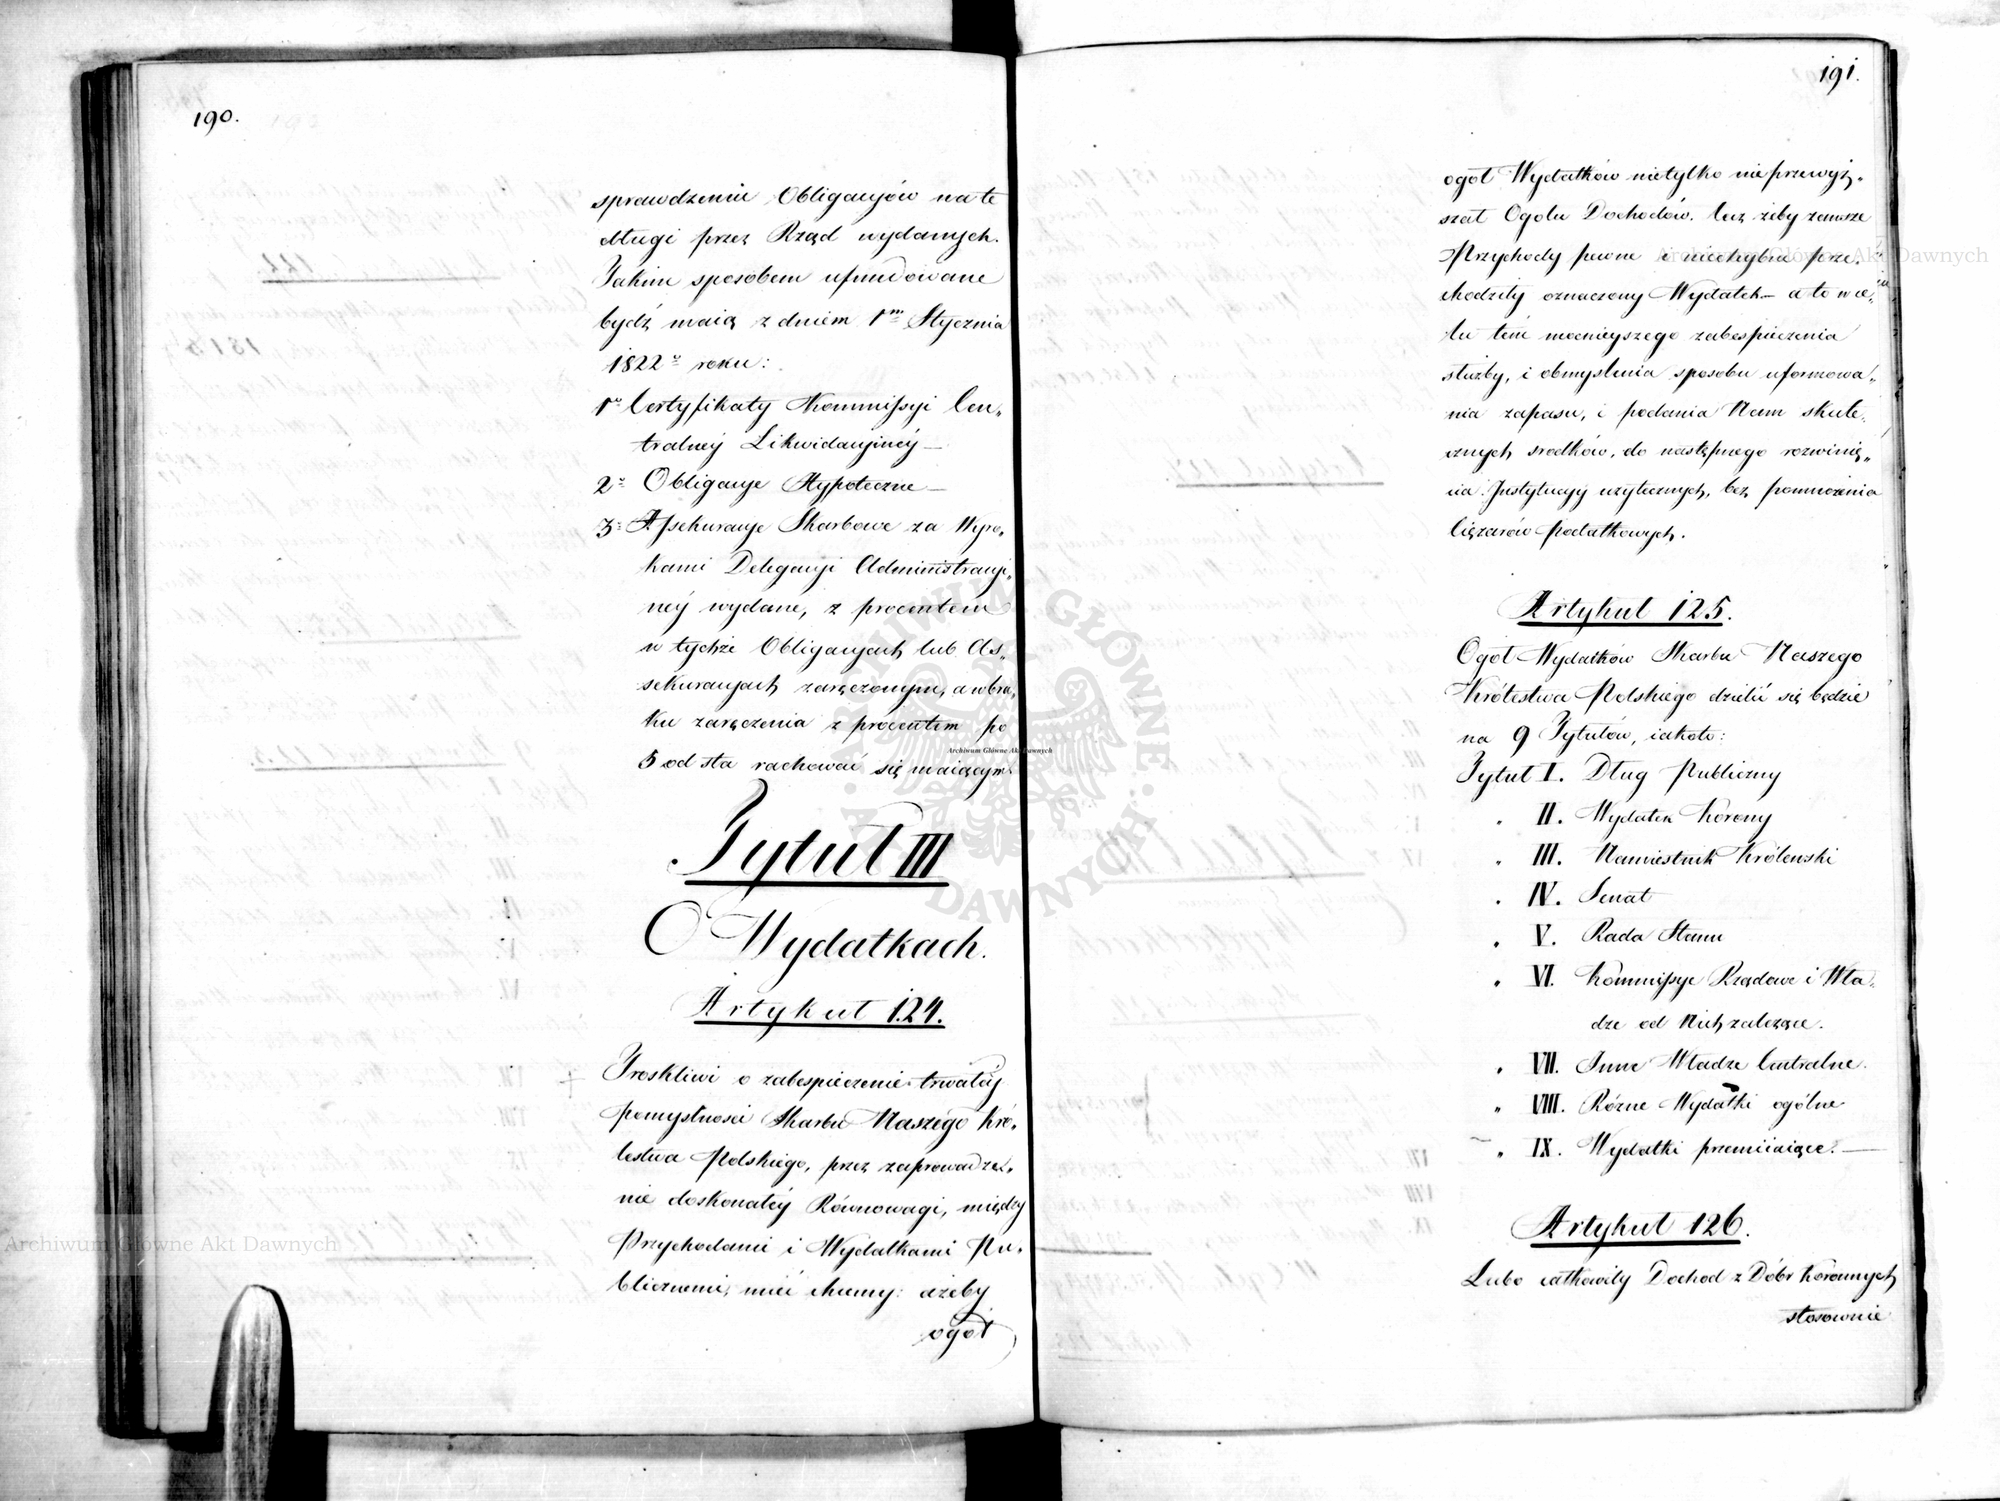 190.
sprawdzeniu Obligacyów na te
długi przez Rząd wydanych.
Jakim sposobem ufundowane
bydź maią z dniem 1m Stycznia
1822o roku:
1o Certyfikaty Kommissyi Cen„
tralney Likwidacyiney —
2o Obligacye Hypoteczne —
3o Assekuracye Skarbowe za Wyro„
kami Delegacyi Administracyi„
néy wydane, z procentem
w tychże Obligacyach lub As„
sekuracyach zaręczonym, a w bra„
ku zaręczenia z procentem po
5 od sta rachować się maiącym.
Tytuł III
O Wydatkach.
Artykuł 124.
Troskliwi o zabespieczenie trwałéy
pomyślności Skarbu Naszégo Kró„
lestwa Polskiego, przez zaprowadze„
nie doskonałéy Równowagi, między
Przychodami i Wydatkami Pu„
blicznemi, mieć chcemy: ażeby
ogół
191.
ogół Wydatków nietylko nie przewyż„
szał Ogółu Dochodów. lecz żeby zawsze
Przychody pewne i niechybne prze„
chodziły oznaczony Wydatek — a to w ce„
lu tém mocnieyszego zabespieczenia
służby, i obmyślenia sposobu uformowa„
nia zapasu, i podania Nam skute„
cznych srodków, do następnego rozwinię„
cia Instytucyy użytecznych, bez pomnożenia
Ciężarów Podatkowych.
Artykuł 125.
Ogół Wydatków Skarbu Naszego
Królestwa Polskiego dzielić się będzie
na 9 Tytułów, iakoto:
Tytuł I. Dług Publiczny
„ II. Wydatek Korony
„ III. Namiestnik Królewski
„ IV. Senat
„ V. Rada Stanu
„ VI. Kommissye Rządowe i Wła„
dze od Nich zależące.
„ VII. Inne Władze Centralne.
„ VIII. Różne Wydatki ogólne
„ IX. Wydatki przemiiaiące. —
Artykuł 126.
Lubo całkowity Dochod z Dóbr Koronnych
stosownie
Archiwum Główne Akt Dawnych
Archiwum Główne Akt Dawnych
Archiwum Główne Akt Dawnych
ARCHIWUM GŁÓWNE AKT DAWNYCH